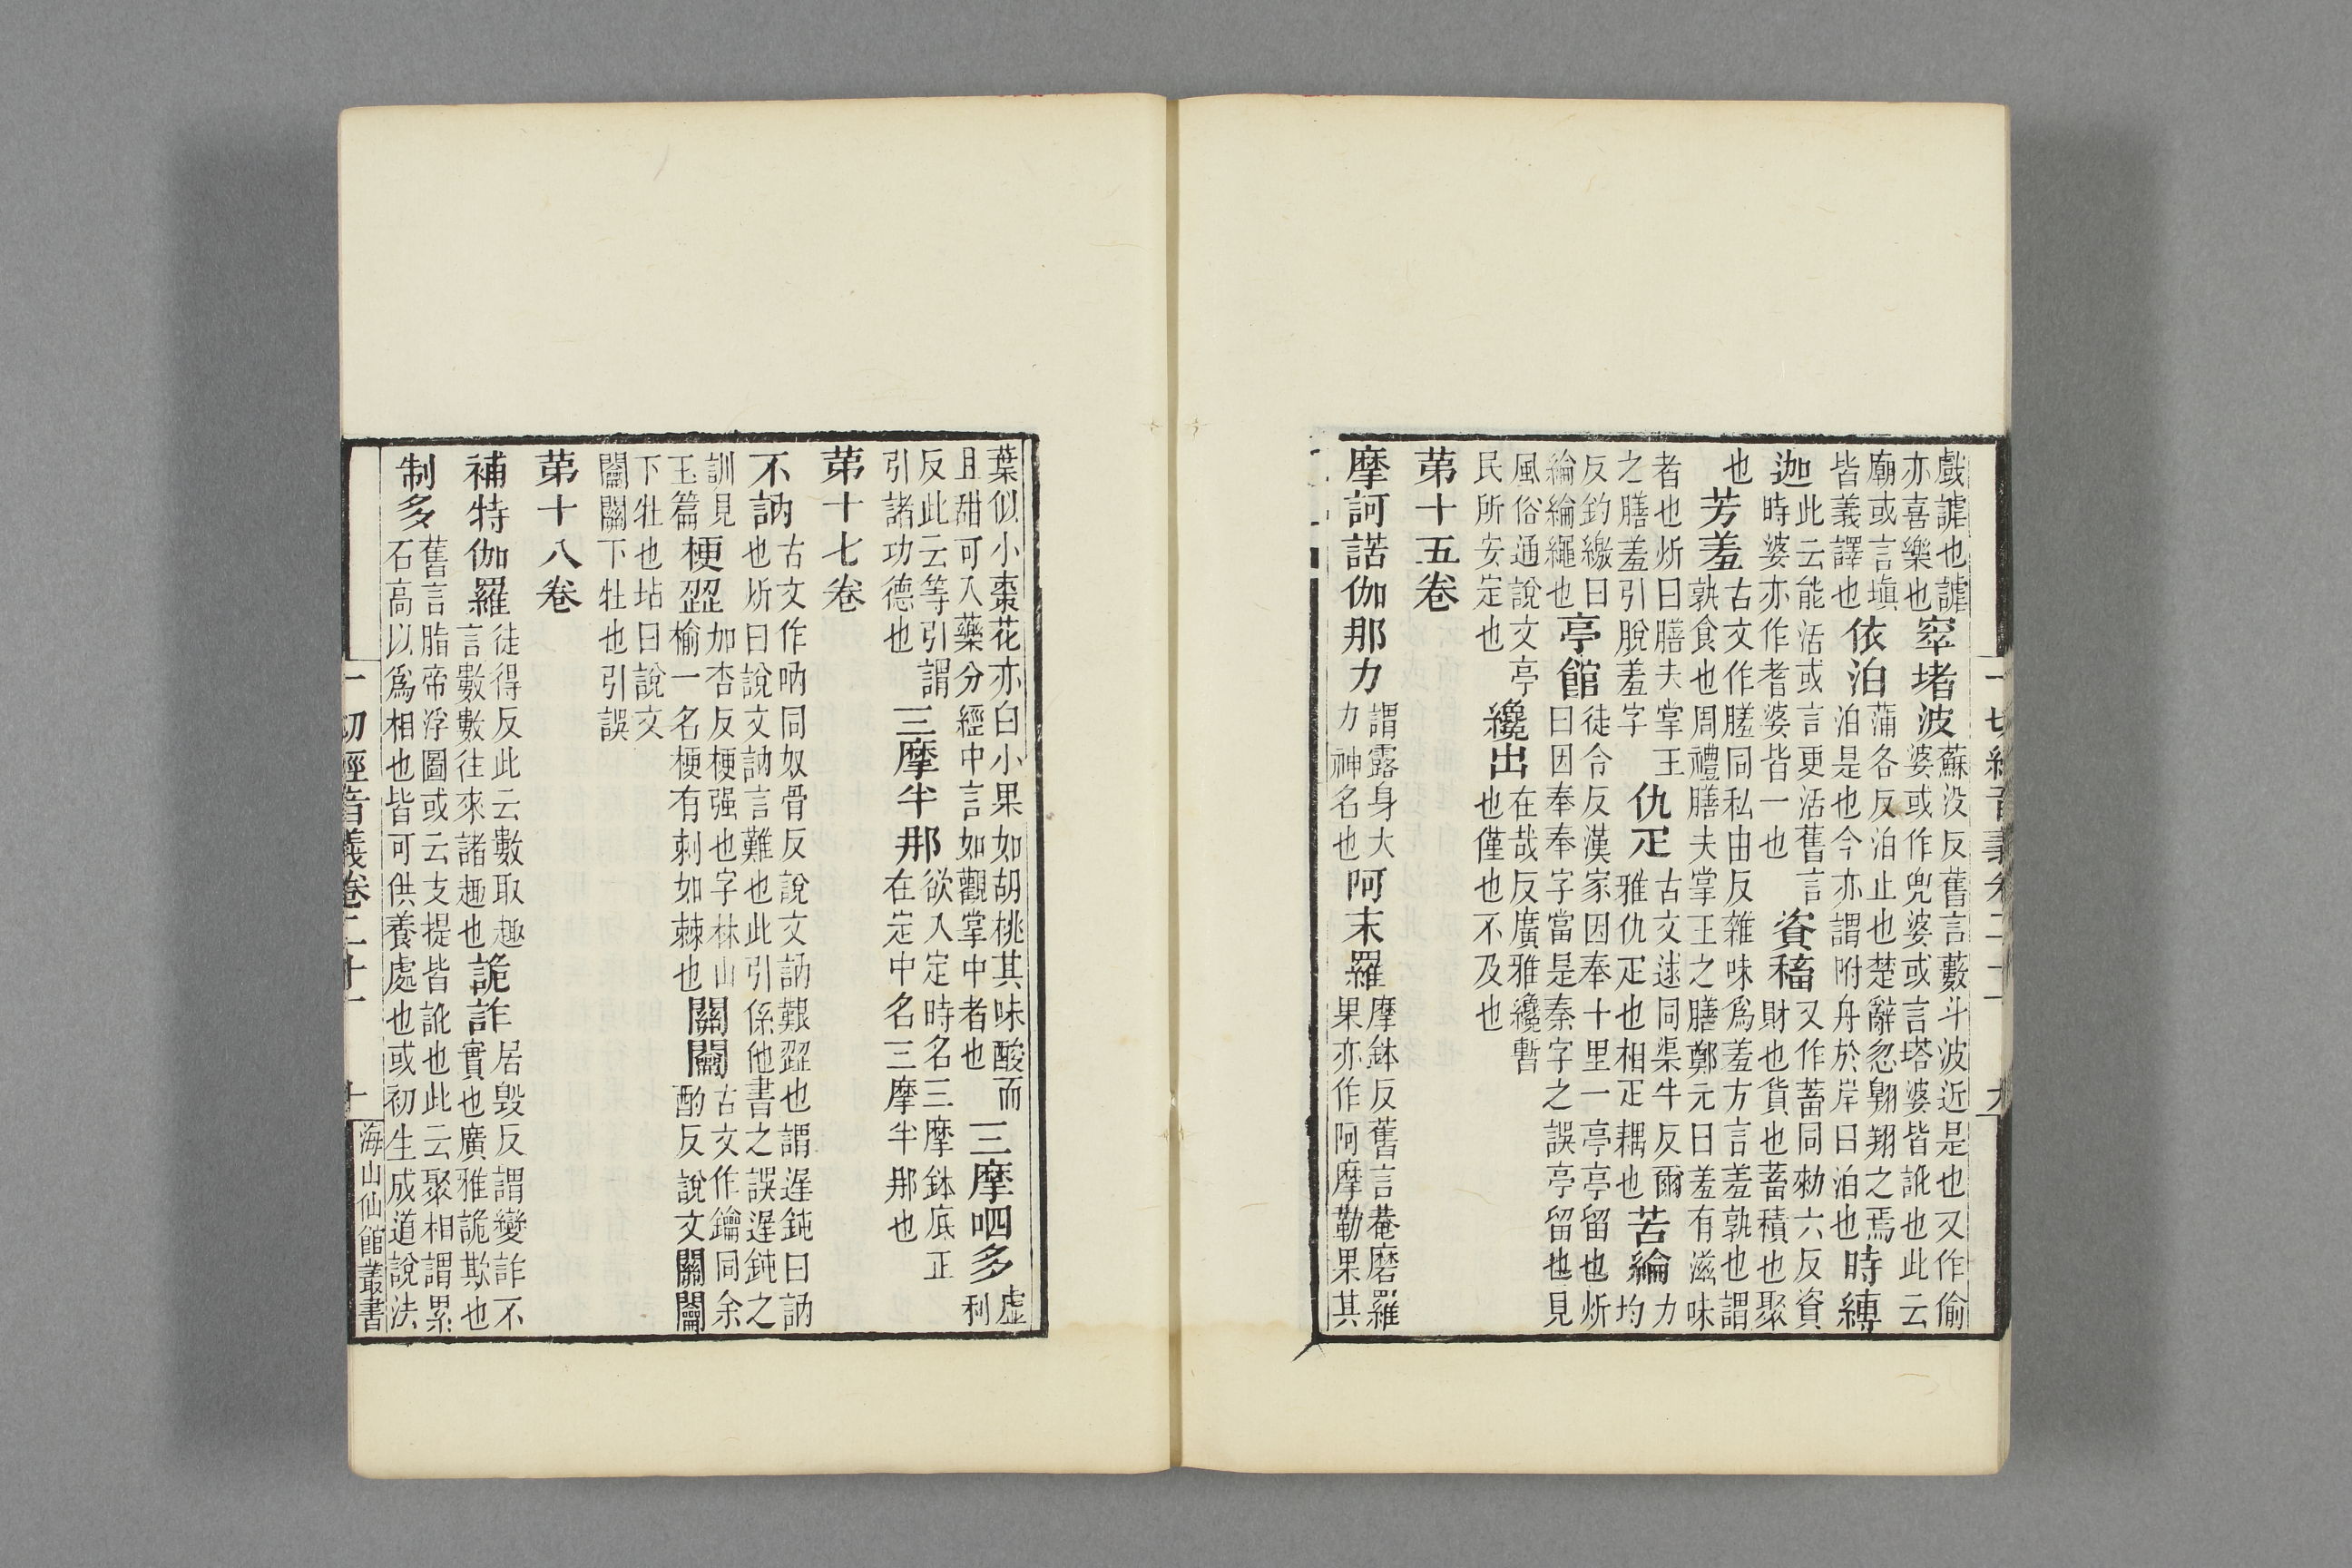 一切經音義卷二十一　九
戲謔也謔亦喜樂也窣堵波蘇没反舊言藪斗波近是也又作偷婆或作兜婆或言塔婆皆訛也此云
廟或言塡皆義譯也依泊蒲各反泊止也楚辭忽翱翔之焉泊是也今亦謂附舟於岸曰泊也時縛
迦此云能活或言更活舊言時婆亦作耆婆皆一也資稸又作蓄同勑六反資財也貨也蓄積也聚
也芳羞古文作䐹同私由反雜味爲羞方言羞孰也謂孰食也周禮膳夫掌王之膳鄭元曰羞有滋味
者也炘曰膳夫掌王之膳羞引脫羞字仇疋古文逑同渠牛反爾雅仇疋也相疋耦也苦綸力均
反釣繳曰綸綸繩也亭館徒令反漢家因奉十里一亭亭留也炘曰因奉奉字當是秦字之誤亭留也見
風俗通說文亭民所安定也纔出在哉反廣雅纔暫也僅也不及也
苐十五卷
摩訶諾伽那力謂露身大力神名也阿末羅摩鉢反舊言菴磨羅果亦作阿摩勒果其
葉似小棗花亦白小果如胡桃其味酸而且甜可入藥分經中言如觀掌中者也三摩呬多虛利
反此云等引謂引諸功德也三摩半那欲入定時名三摩鉢底正在定中名三摩半那也
苐十七卷
不訥古文作吶同奴骨反說文訥艱澀也謂遲鈍曰訥也炘曰說文訥言難也此引係他書之誤遲鈍之
訓見玉篇梗澀加杏反梗强也字林山榆一名梗有刺如棘也關闟古文作鑰同余酌反說文關闟
下牡也坫曰說文闟關下牡也引誤
苐十八卷
補特伽羅徒得反此云數取趣言數數往來諸趣也詭詐居毁反謂變詐不實也廣雅詭欺也
制多舊言脂帝浮圖或云支提皆訛也此云聚相謂累石高以爲相也皆可供養處也或初生成道說法
一切經音義卷二十一　十　海山仙館叢書